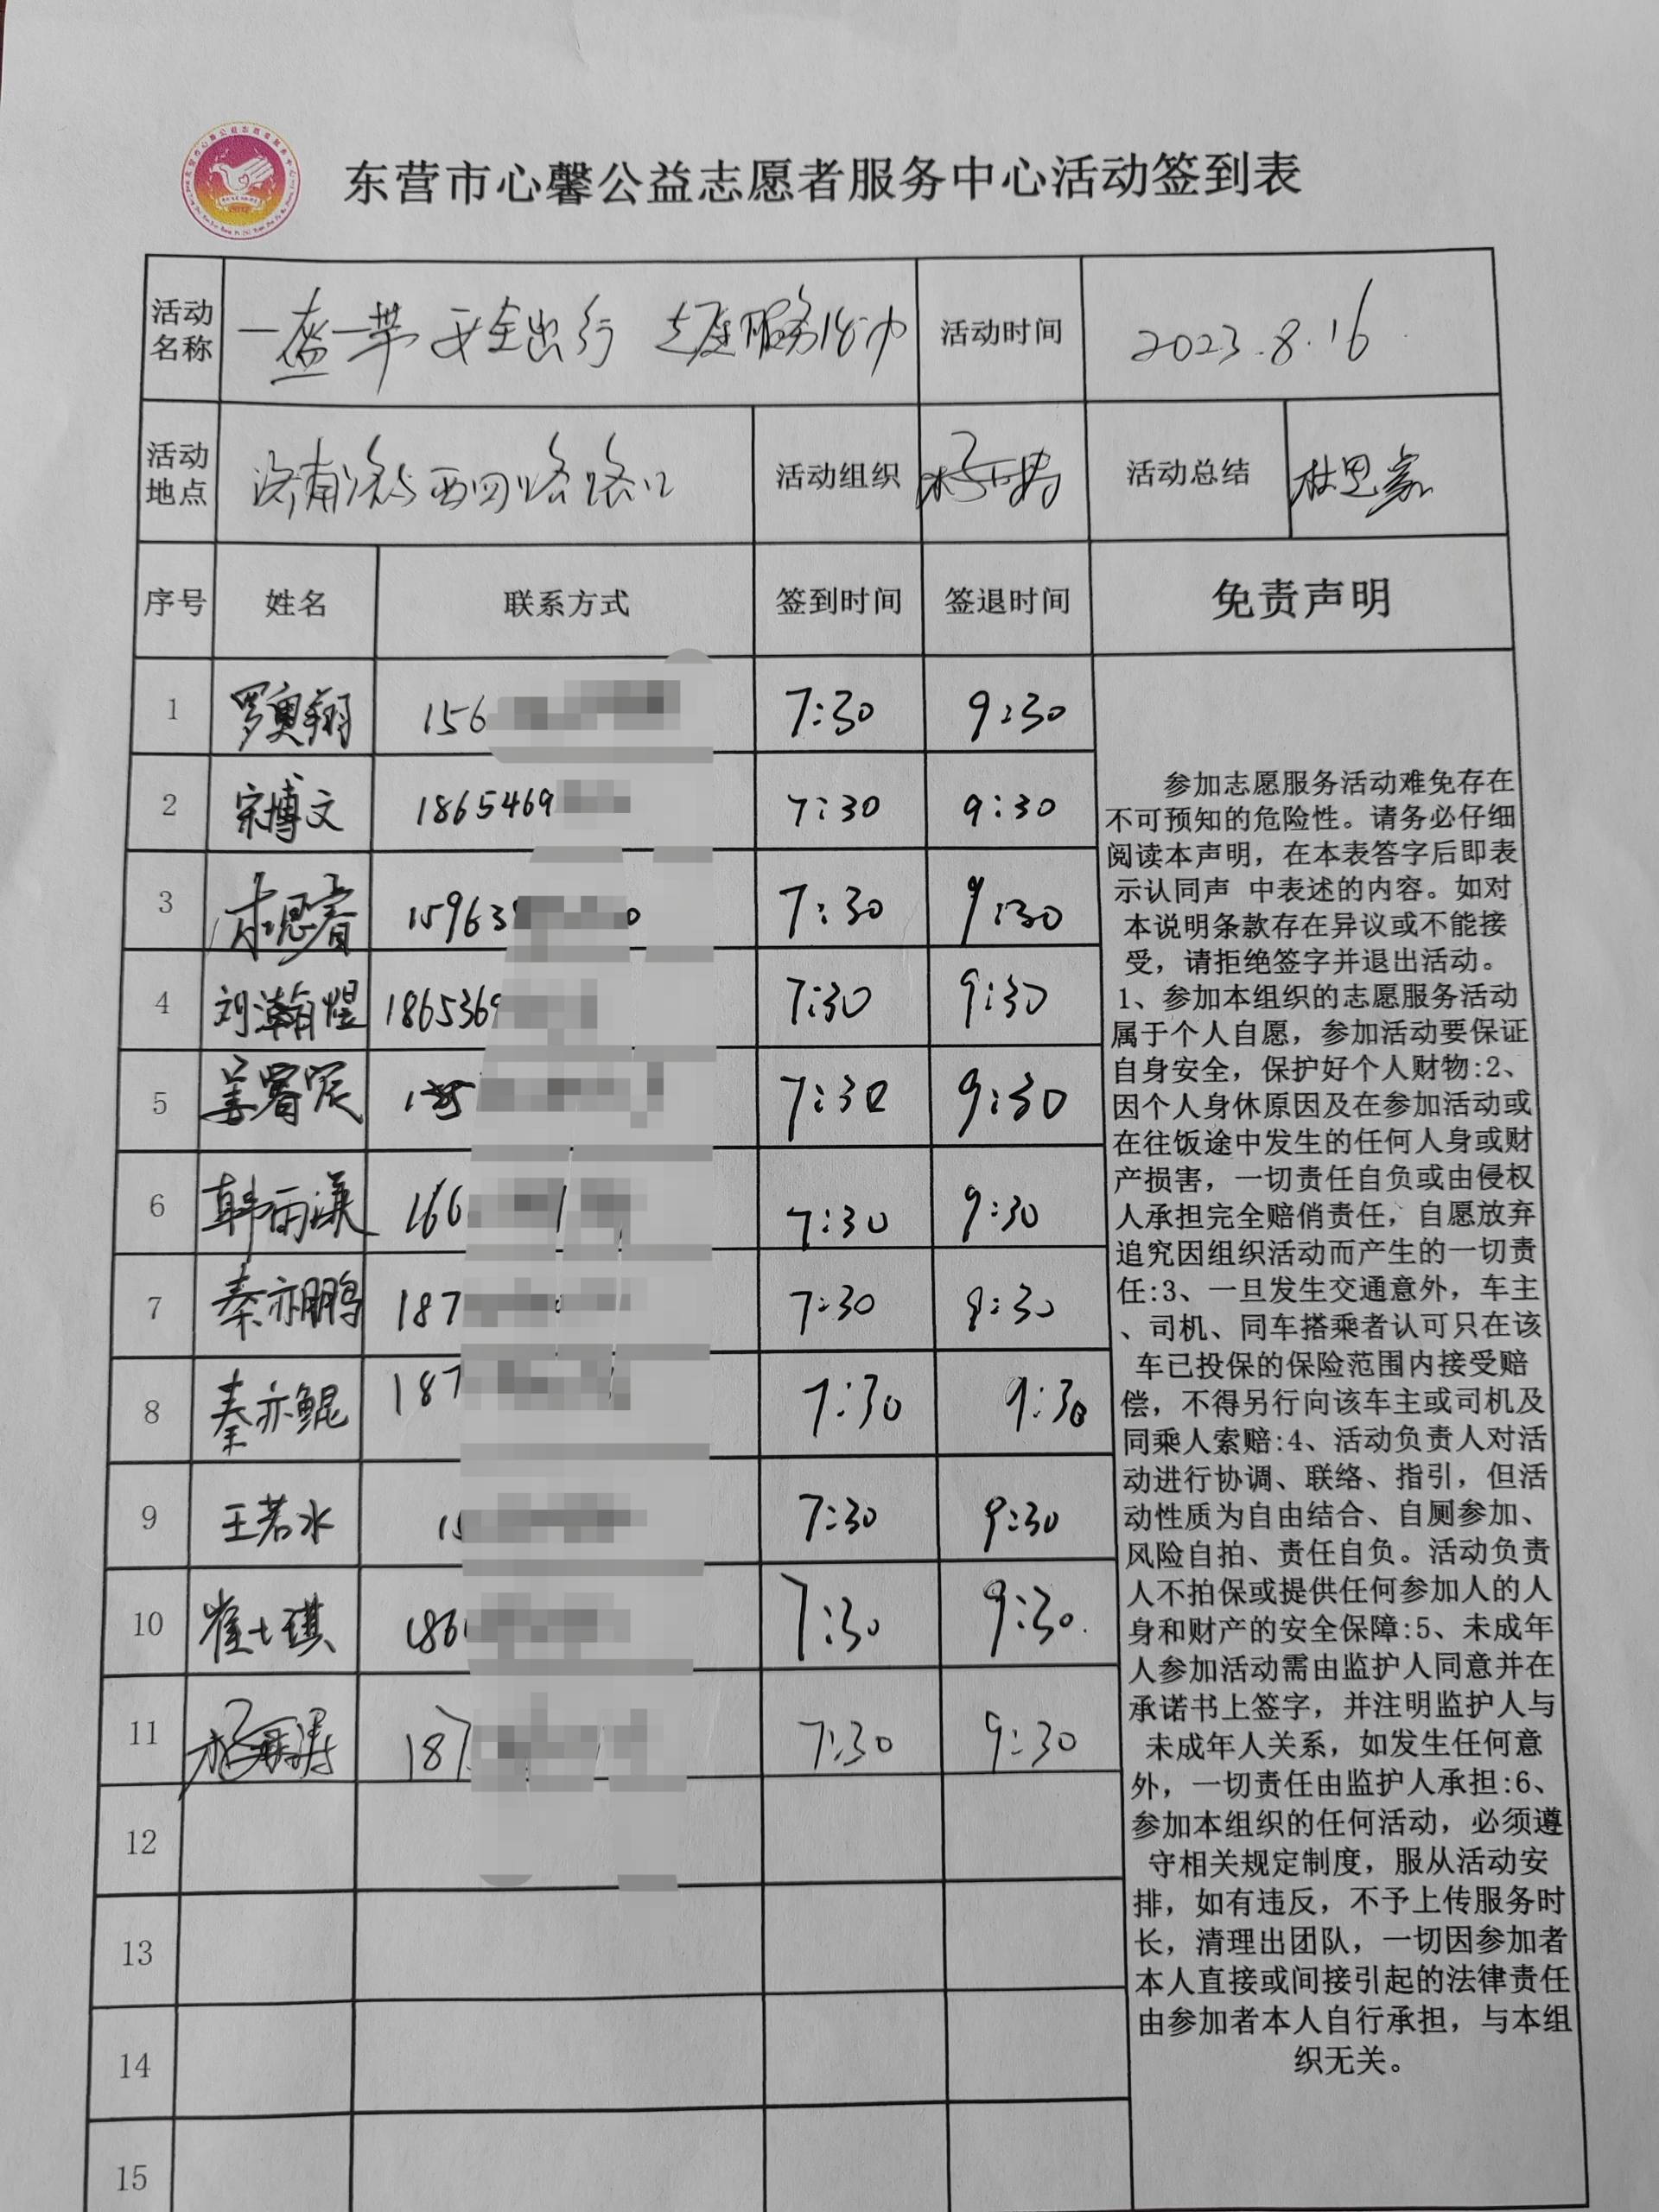 东营市心馨公益志愿者服务中心活动签到表
活动名称 一盔一带 安全出行 志愿服务活动 活动时间 2023.8.16
活动地点 济南路与西四路路口 活动组织 活动总结
序号 姓名 联系方式 签到时间 签退时间 免责声明
1 罗奥翔 156 7:30 9:30
2 宋博文 1865469 7:30 9:30
3 15963 7:30 9:30
4 刘瀚煜 1865369 7:30 9:30
5 姜睿宸 7:30 9:30
6 166 7:30 9:30
7 秦亦鹏 187 7:30 9:30
8 秦亦鲲 187 7:30 9:30
9 王若水 15 7:30 9:30
10 崔士琪 186 7:30 9:30
11 187 7:30 9:30
12
13
14
15
参加志愿服务活动难免存在
不可预知的危险性。请务必仔细
阅读本声明，在本表答字后即表
示认同声 中表述的内容。如对
本说明条款存在异议或不能接
受，请拒绝签字并退出活动。
1、参加本组织的志愿服务活动
属于个人自愿，参加活动要保证
自身安全，保护好个人财物:2、
因个人身休原因及在参加活动或
在往饭途中发生的任何人身或财
产损害，一切责任自负或由侵权
人承担完全赔俏责任，自愿放弃
追究因组织活动而产生的一切责
任:3、一旦发生交通意外，车主
、司机、同车搭乘者认可只在该
车已投保的保险范围内接受赔
偿，不得另行向该车主或司机及
同乘人索赔:4、活动负责人对活
动进行协调、联络、指引，但活
动性质为自由结合、自厕参加、
风险自拍、责任自负。活动负责
人不拍保或提供任何参加人的人
身和财产的安全保障:5、未成年
人参加活动需由监护人同意并在
承诺书上签字，并注明监护人与
未成年人关系，如发生任何意
外，一切责任由监护人承担:6、
参加本组织的任何活动，必须遵
守相关规定制度，服从活动安
排，如有违反，不予上传服务时
长，清理出团队，一切因参加者
本人直接或间接引起的法律责任
由参加者本人自行承担，与本组
织无关。